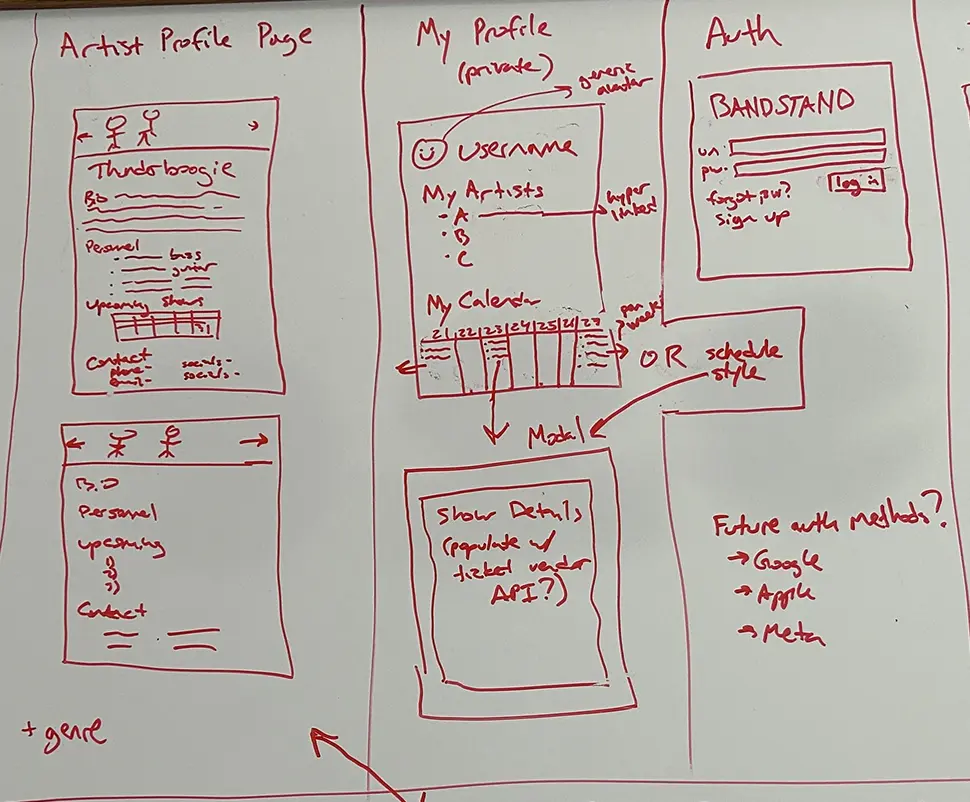 Artist Profile Page
Thunderboogie
Bio
Personnel
bass
guitar
upcoming shows
31
Contact
phone-
email-
socials-
socials-
Bio
Personnel
upcoming
1)
2)
3)
Contact
+ genre
My Profile
(private)
generic
avatar
username
My Artists
· A
hyper
linked
· B
· C
My Calendar
pan
week
21 22 23 24 25 26 27
OR schedule
style
Modal
Show Details
(populate w/
ticket vendor
API?)
Auth
BANDSTAND
un:
pw:
log in
forgot pw?
sign up
Future auth methods?
→ Google
→ Apple
→ Meta